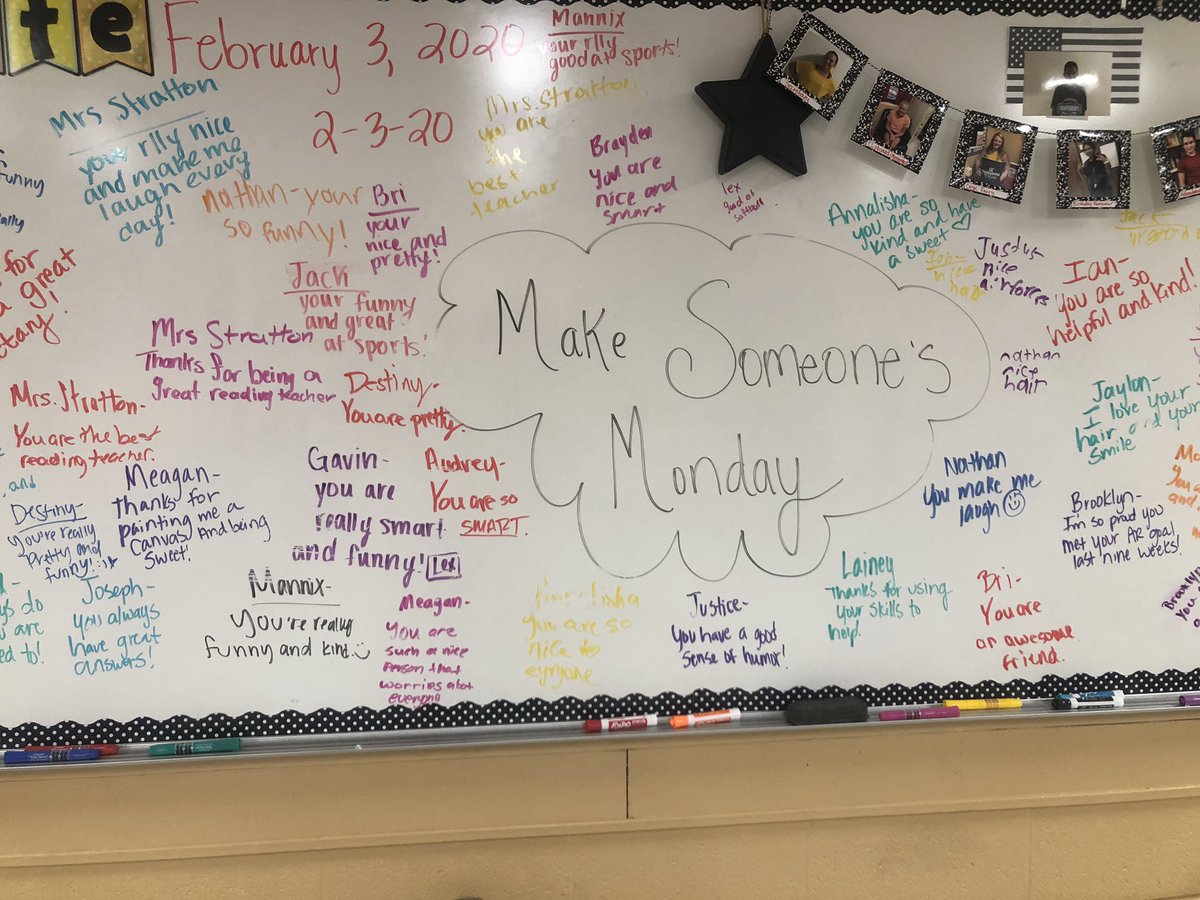 te
February 3, 2020
2-3-20
Mannix
your rlly
good at sports!
Mrs Stratton
your rlly nice
and make me
laugh every
day!
Mrs. Stratton,
you are
the
best
teacher
Brayden
you are
nice and
smart
Lex
good at
softball
nathan-your
so funny!
Bri
your
nice and
pretty!
funny
Jack
your funny
and great
at sports!
Annalisha-
you are so
kind and have
a sweet
Ian-
nice
hair
Justus
nice
airforces
Jack-
Ian-
you are so
helpful and kind!
for
a great
Mrs Stratton
Thanks for being a
great reading teacher
Destiny-
You are pretty.
Make Someone's
Monday
nathan
nice
hair
Jaylon-
I love your
hair and your
smile
Mrs. Stratton-
You are the best
reading teacher.
and
Destiny-
you're really
pretty and
funny!
Meagan-
thanks for
painting me a
canvas And being
sweet!
Gavin-
you are
really smart
and funny!
Lex
Audrey-
You are so
SMART.
Nathan
you make me
laugh
Brooklyn-
I'm so proud you
met your AR goal
last nine weeks!
do
are
to!
Joseph-
you always
have great
answers!
Mannix-
You're really
funny and kind.
Meagan-
you are
such a nice
person that
worries abot
everyone
you are so
nice to
eyryone
Justice-
you have a good
sense of humor!
Lainey
Thanks for using
your skills to
help!
Bri-
You are
an awesome
friend.
EXPO
EXPO